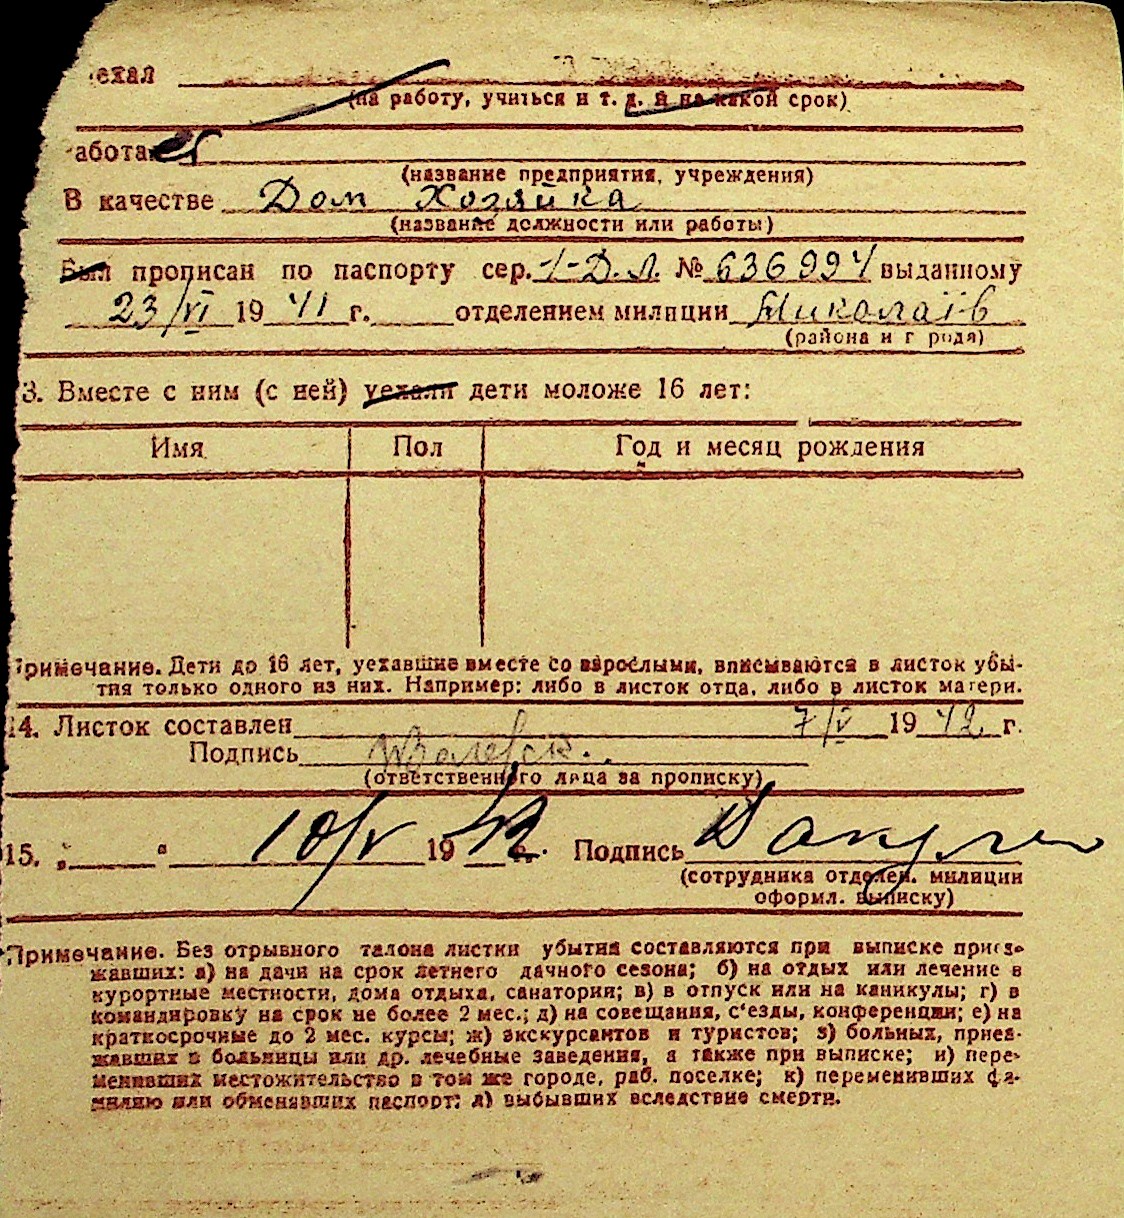 ехал
(на работу, учиться и т. д. и на какой срок)
абота
(название предприятия, учреждения)
В качестве Дом Хозяйка
(название должности или работы)
Был прописан по паспорту сер. 1-Д.Л. № 636994 выданному
23/VI 1941 г. отделением милиции Миколаїв
(района и г рода)
3. Вместе с ним (с ней) уехали дети моложе 16 лет:
Имя Пол Год и месяц рождения
Примечание. Дети до 16 лет, уехавшие вместе со взрослыми, вписываются в листок убы-
тия только одного из них. Например: либо в листок отца, либо в листок матери.
14. Листок составлен 7/V 1942 г.
Подпись
(ответственного лица за прописку)
15. „ “ 10/V 1942 г. Подпись
(сотрудника отделен. милиции
оформл. выписку)
Примечание. Без отрывного талона листки убытия составляются при выписке приез-
жавших: а) на дачи на срок летнего дачного сезона; б) на отдых или лечение в
курортные местности, дома отдыха, санатории; в) в отпуск или на каникулы; г) в
командировку на срок не более 2 мес.; д) на совещания, с'езды, конференции; е) на
краткосрочные до 2 мес. курсы; ж) экскурсантов и туристов; з) больных, приез-
жавших в больницы или др. лечебные заведения, а также при выписке; и) пере-
менивших местожительство в том же городе, раб. поселке; к) переменивших фа-
милию или обменявших паспорт; л) выбывших вследствие смерти.